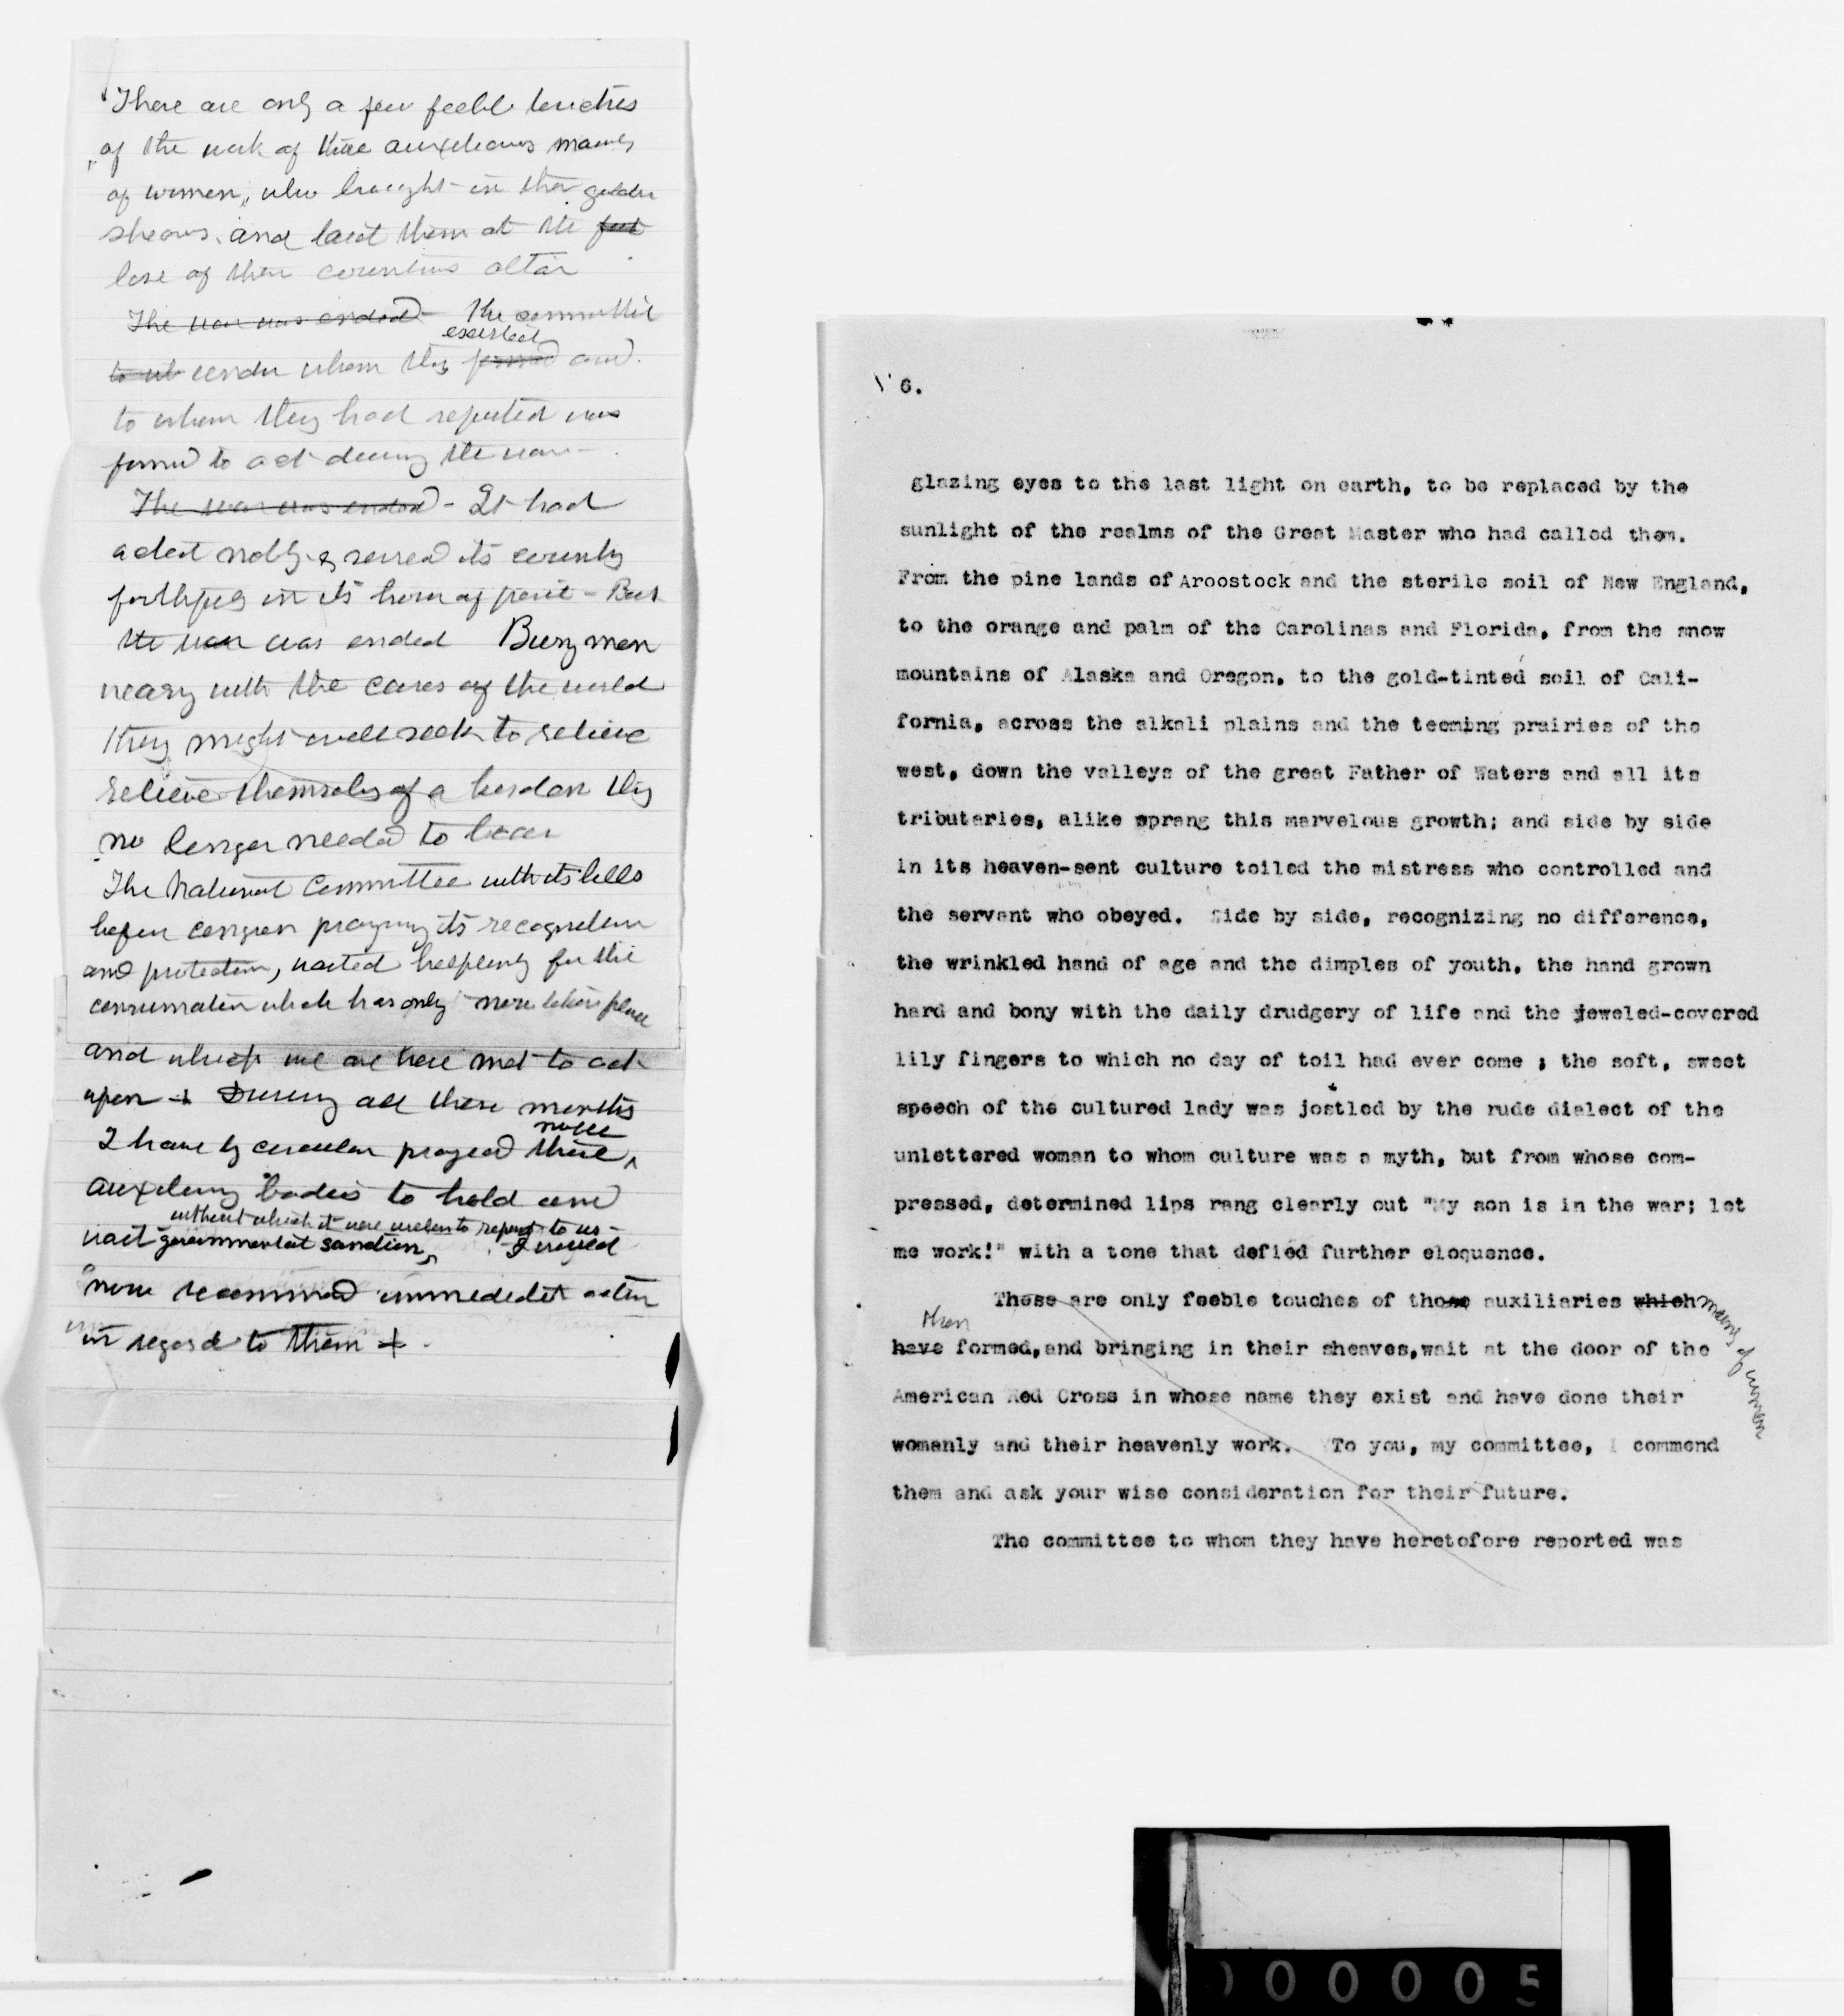 There are only a few feeble touches
of the work of these auxiliaries mainly
of women, who brought in their golden
sheaves, and laid them at the feet
base of their countries altar
The war was ended - The committee
existed
to wh under whom they formed and
to whom they had reported was
formed to act during the war -
The war was ended - It had
acted nobly & served its country
faithfully in its hour of peril - But
the war was ended Busy men
weary with the cares of the world
they might well seek to relieve
relieve themselves of a burden they
no longer needed to bear
The National Committee with its bills
before congress praying its recognition
and protection, waited helplessly for the
consumation which has only now taken place
and which we are here met to act
upon + During all these months
noble
I have by circular prayed these
auxiliary bodies to hold and
without which it were useless to report to us -
wait governmental sanction, I would
now recommend immediate action
in regard to them +
6.
glazing eyes to the last light on earth, to be replaced by the
sunlight of the realms of the Great Master who had called them.
From the pine lands of Aroostock and the sterile soil of New England,
to the orange and palm of the Carolinas and Florida, from the snow
mountains of Alaska and Oregon, to the gold-tinted soil of Cali-
fornia, across the alkali plains and the teeming prairies of the
west, down the valleys of the great Father of Waters and all its
tributaries, alike sprang this marvelous growth; and side by side
in its heaven-sent culture toiled the mistress who controlled and
the servant who obeyed. Side by side, recognizing no difference,
the wrinkled hand of age and the dimples of youth, the hand grown
hard and bony with the daily drudgery of life and the jeweled-covered
lily fingers to which no day of toil had ever come ; the soft, sweet
speech of the cultured lady was jostled by the rude dialect of the
unlettered woman to whom culture was a myth, but from whose com-
pressed, determined lips rang clearly out "My son is in the war; let
me work!" with a tone that defied further eloquence.
These are only feeble touches of those auxiliaries which mainly of women
then
have formed, and bringing in their sheaves, wait at the door of the
American Red Cross in whose name they exist and have done their
womanly and their heavenly work. To you, my committee, I commend
them and ask your wise consideration for their future.
The committee to whom they have heretofore reported was
000005